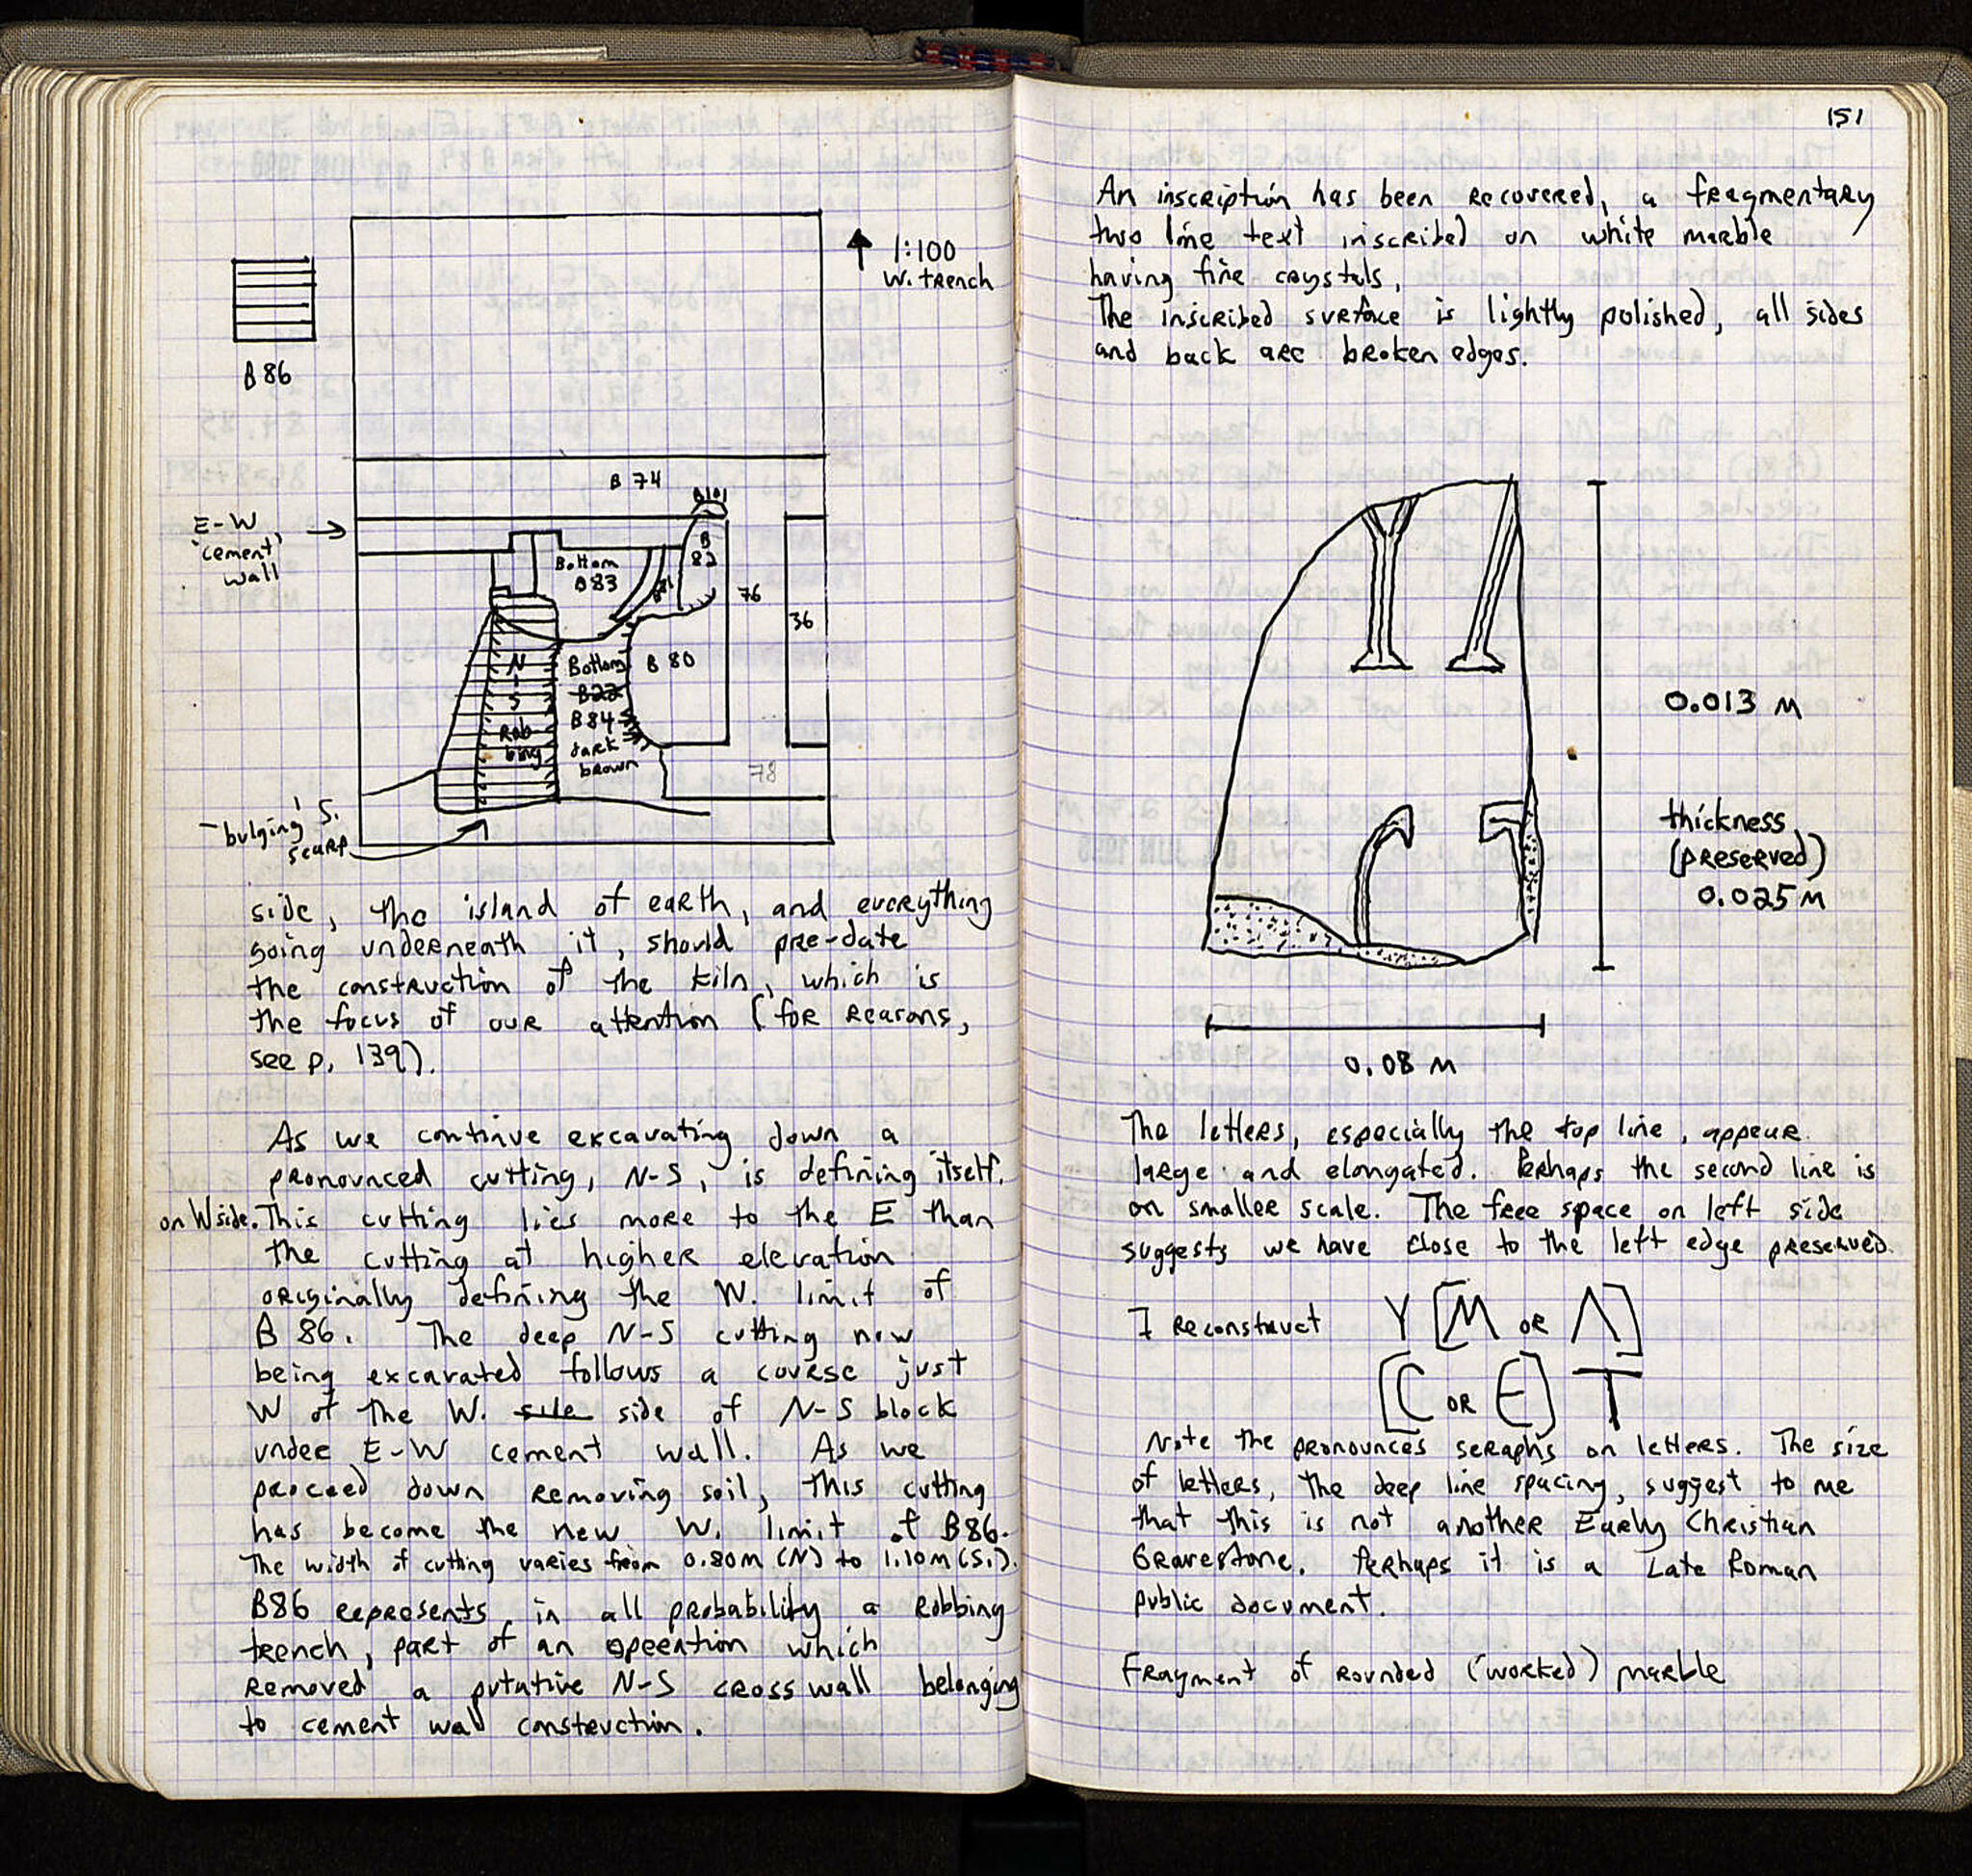 1:100
W. trench
B 86
B 74
B 101
E-W
"cement"
wall
Bottom
B83
B
82
B81
76
36
N
-
S
Rob-
bing
Bottom
B22
B84
dark
brown
B 80
78
bulging S.
scarp
side, the island of earth, and everything
going underneath it, should pre-date
the construction of the kiln, which is
the focus of our attention (for reasons,
see p. 139).
As we continue excavating down a
pronounced cutting, N-S, is defining itself.
on W side. This cutting lies more to the E than
the cutting at higher elevation
originally defining the W. limit of
B 86. The deep N-S cutting now
being excavated follows a course just
W of the W. side side of N-S block
under E-W cement wall. As we
proceed down removing soil, this cutting
has become the new W. limit of B86.
The width of cutting varies from 0.80m (N) to 1.10m (S.).
B86 represents, in all probability a robbing
trench, part of an operation which
removed a putative N-S cross wall belonging
to cement wall construction.
151
An inscription has been recovered, a fragmentary
two line text inscribed on white marble
having fine crystals.
The inscribed surface is lightly polished, all sides
and back are broken edges.
0.013 M
thickness
(preserved)
0.025 M
0.08 M
The letters, especially the top line, appear
large and elongated. Perhaps the second line is
on smaller scale. The free space on left side
suggests we have close to the left edge preserved.
I reconstruct Y [M or Λ]
[C or E] T
Note the pronounces seraphs on letters. The size
of letters, the deep line spacing, suggest to me
that this is not another Early Christian
Gravestone. Perhaps it is a Late Roman
public document.
Fragment of rounded (worked) marble